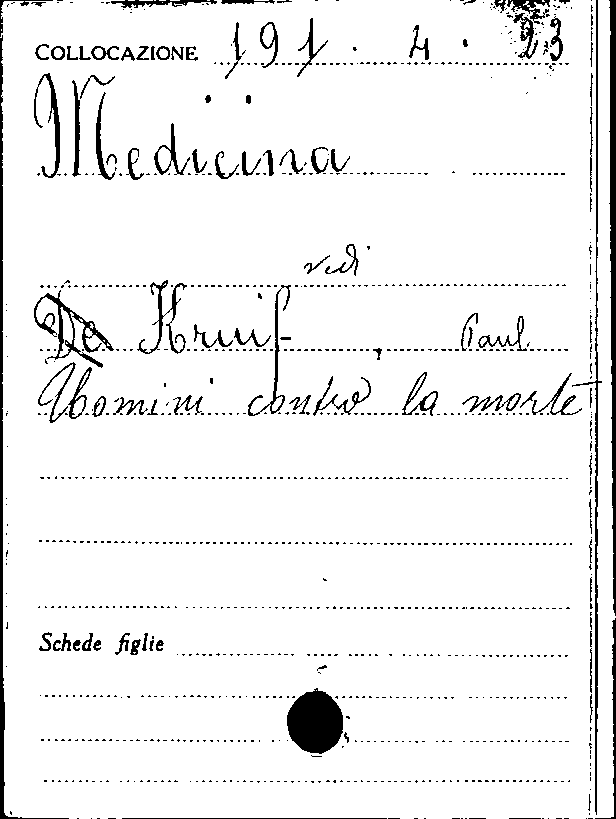 COLLOCAZIONE 191. 4. 23
Medicina
vedi
De Kruif, Paul
Uomini contro la morte
Schede figlie